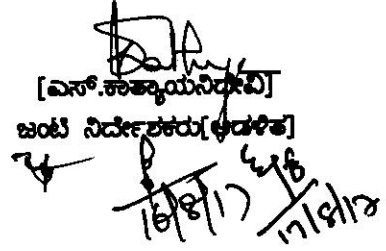 [ಎಸ್.ಕಾತ್ಯಾಯನಿದೇವಿ]
ಜಂಟಿ ನಿರ್ದೇಶಕರು[ಆಡಳಿತ]
16/8/17
17/8/17